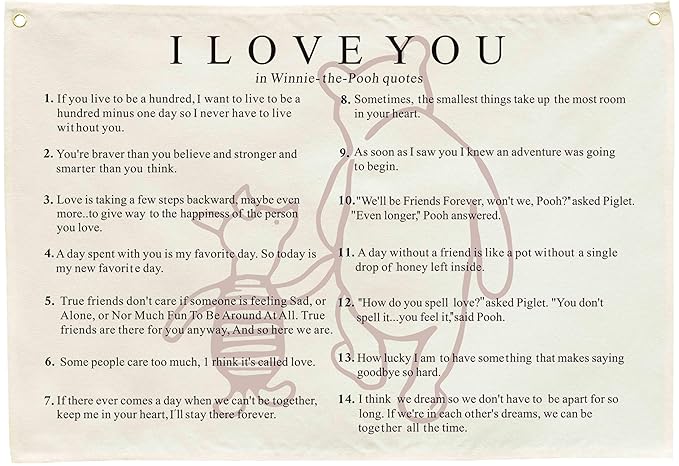 I LOVE YOU
in Winnie-the-Pooh quotes
1. If you live to be a hundred, I want to live to be a
hundred minus one day so I never have to live
without you.
2. You're braver than you believe and stronger and
smarter than you think.
3. Love is taking a few steps backward, maybe even
more..to give way to the happiness of the person
you love.
4. A day spent with you is my favorite day. So today is
my new favorite day.
5. True friends don't care if someone is feeling Sad, or
Alone, or Nor Much Fun To Be Around At All. True
friends are there for you anyway, And so here we are.
6. Some people care too much, 1 rhink it's called love.
7. If there ever comes a day when we can't be together,
keep me in your heart, I'll stay there forever.
8. Sometimes, the smallest things take up the most room
in your heart.
9. As soon as I saw you I knew an adventure was going
to begin.
10. "We'll be Friends Forever, won't we, Pooh?" asked Piglet.
"Even longer," Pooh answered.
11. A day without a friend is like a pot without a single
drop of honey left inside.
12. "How do you spell love?" asked Piglet. "You don't
spell it...you feel it," said Pooh.
13. How lucky I am to have something that makes saying
goodbye so hard.
14. I think we dream so we don't have to be apart for so
long. If we're in each other's dreams, we can be
together all the time.